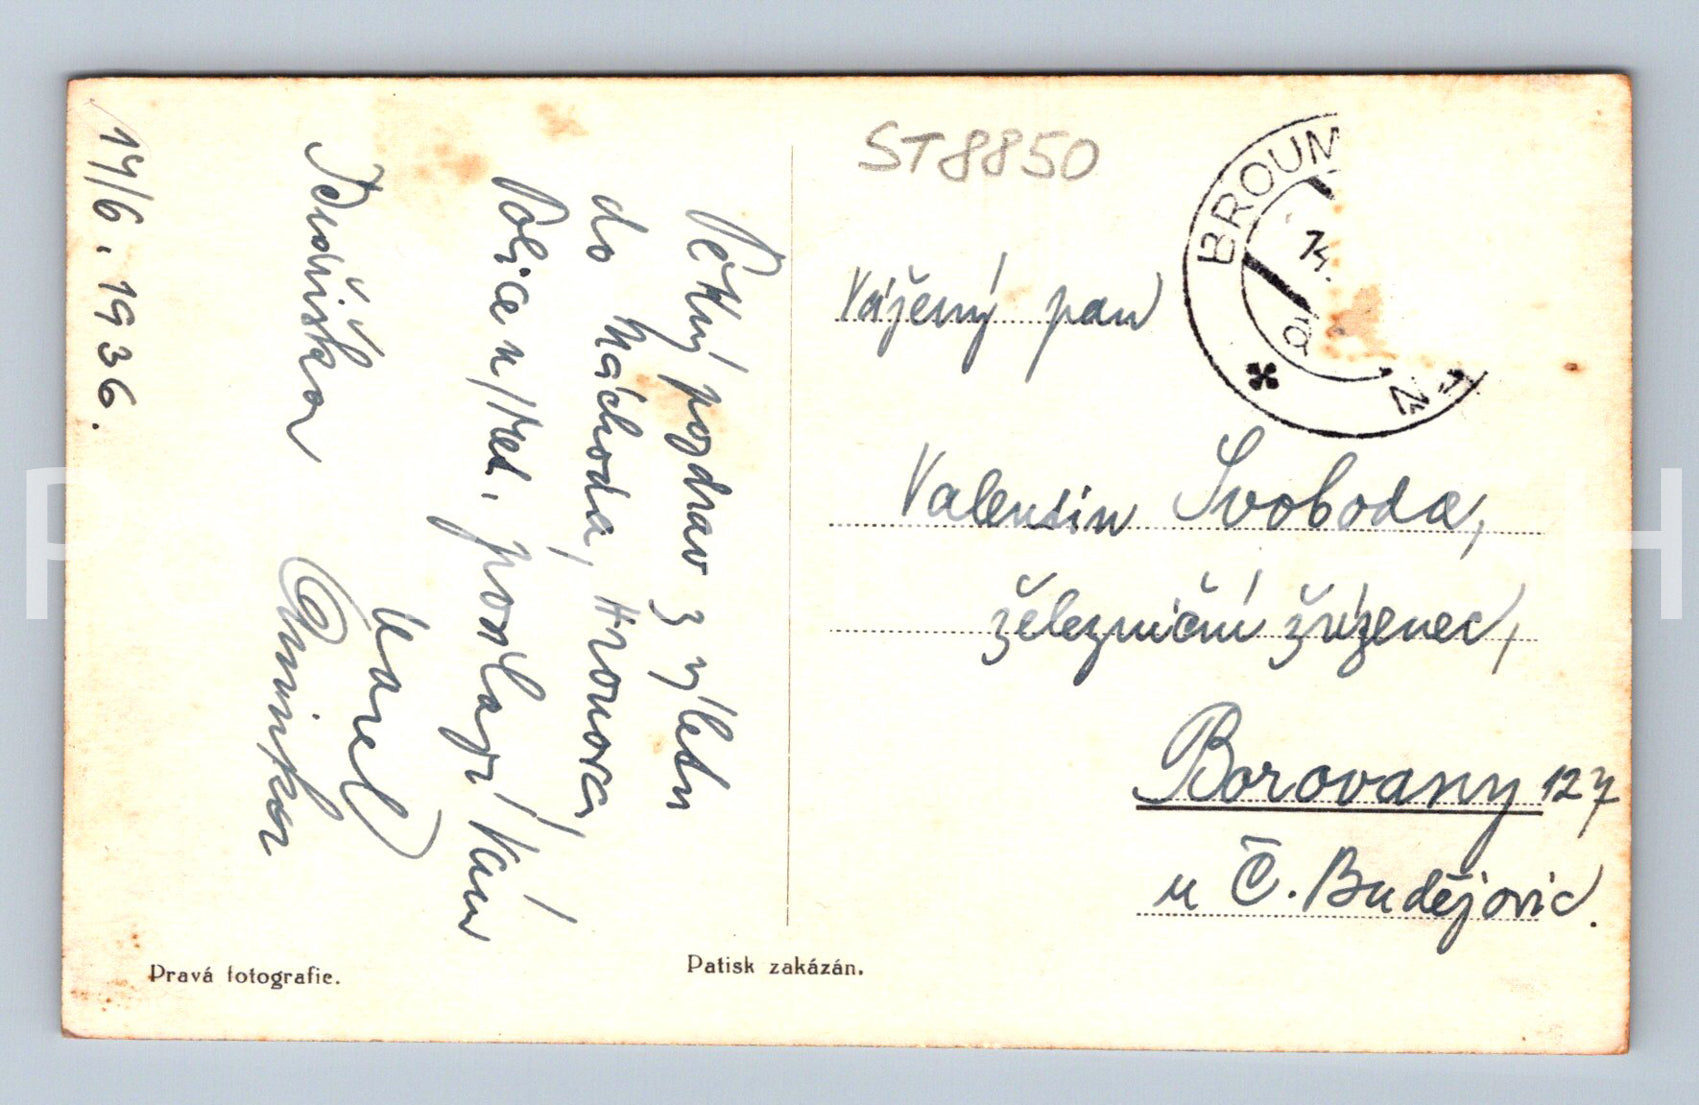 14/6. 1936.
Pěkný pozdrav z výletu
do Náchoda, Hronova,
Police n/Met. posílají Vám
Karel
Anninka
ST8850
BROUM
14.
Vážený pan
Valentin Svoboda,
železniční zřízenec,
Borovany 127
u Č. Budějovic.
Pravá fotografie.
Patisk zakázán.